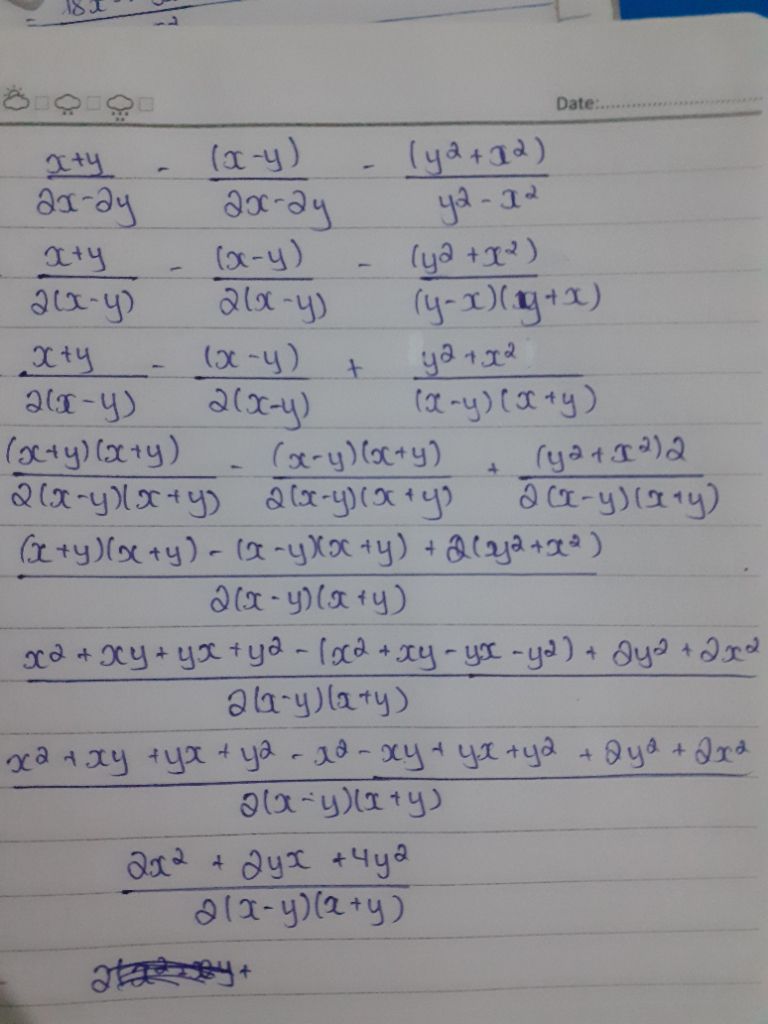 18x
Date:
x+y / 2x-2y - (x-y) / 2x-2y - (y²+x²) / y²-x²
x+y / 2(x-y) - (x-y) / 2(x-y) - (y²+x²) / (y-x)(y+x)
x+y / 2(x-y) - (x-y) / 2(x-y) + y²+x² / (x-y)(x+y)
(x+y)(x+y) / 2(x-y)(x+y) - (x-y)(x+y) / 2(x-y)(x+y) + (y²+x²)2 / 2(x-y)(x+y)
(x+y)(x+y) - (x-y)(x+y) + 2(y²+x²) / 2(x-y)(x+y)
x²+xy+yx+y² - (x²+xy-yx-y²) + 2y²+2x² / 2(x-y)(x+y)
x²+xy+yx+y² - x²-xy+yx+y² + 2y²+2x² / 2(x-y)(x+y)
2x² + 2yx + 4y² / 2(x-y)(x+y)